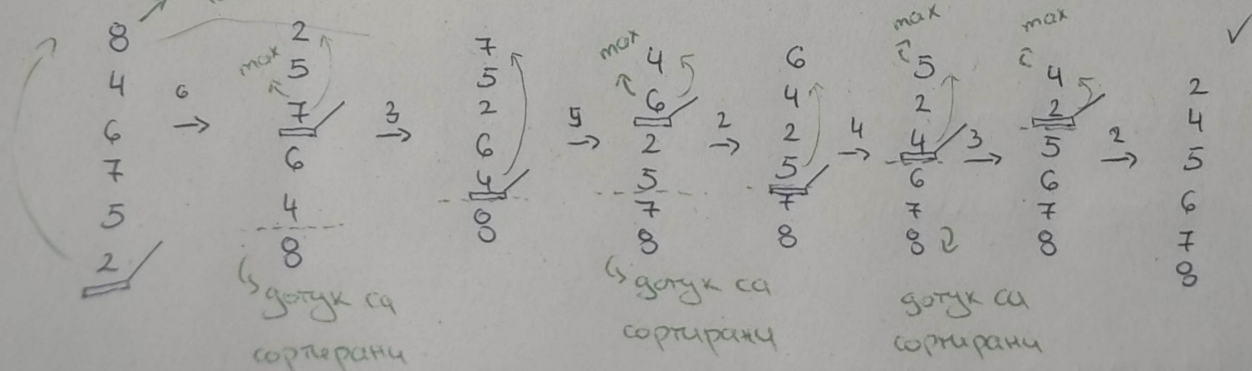 8
4
6
7
5
2
6
max
2
5
7
6
4
8
дотук са
сортирани
3
7
5
2
6
4
8
5
max
4
6
2
5
7
8
дотук са
сортирани
2
6
4
2
5
7
8
4
max
5
2
4
6
7
8
дотук са
сортирани
3
max
4
2
5
6
7
8
2
2
4
5
6
7
8